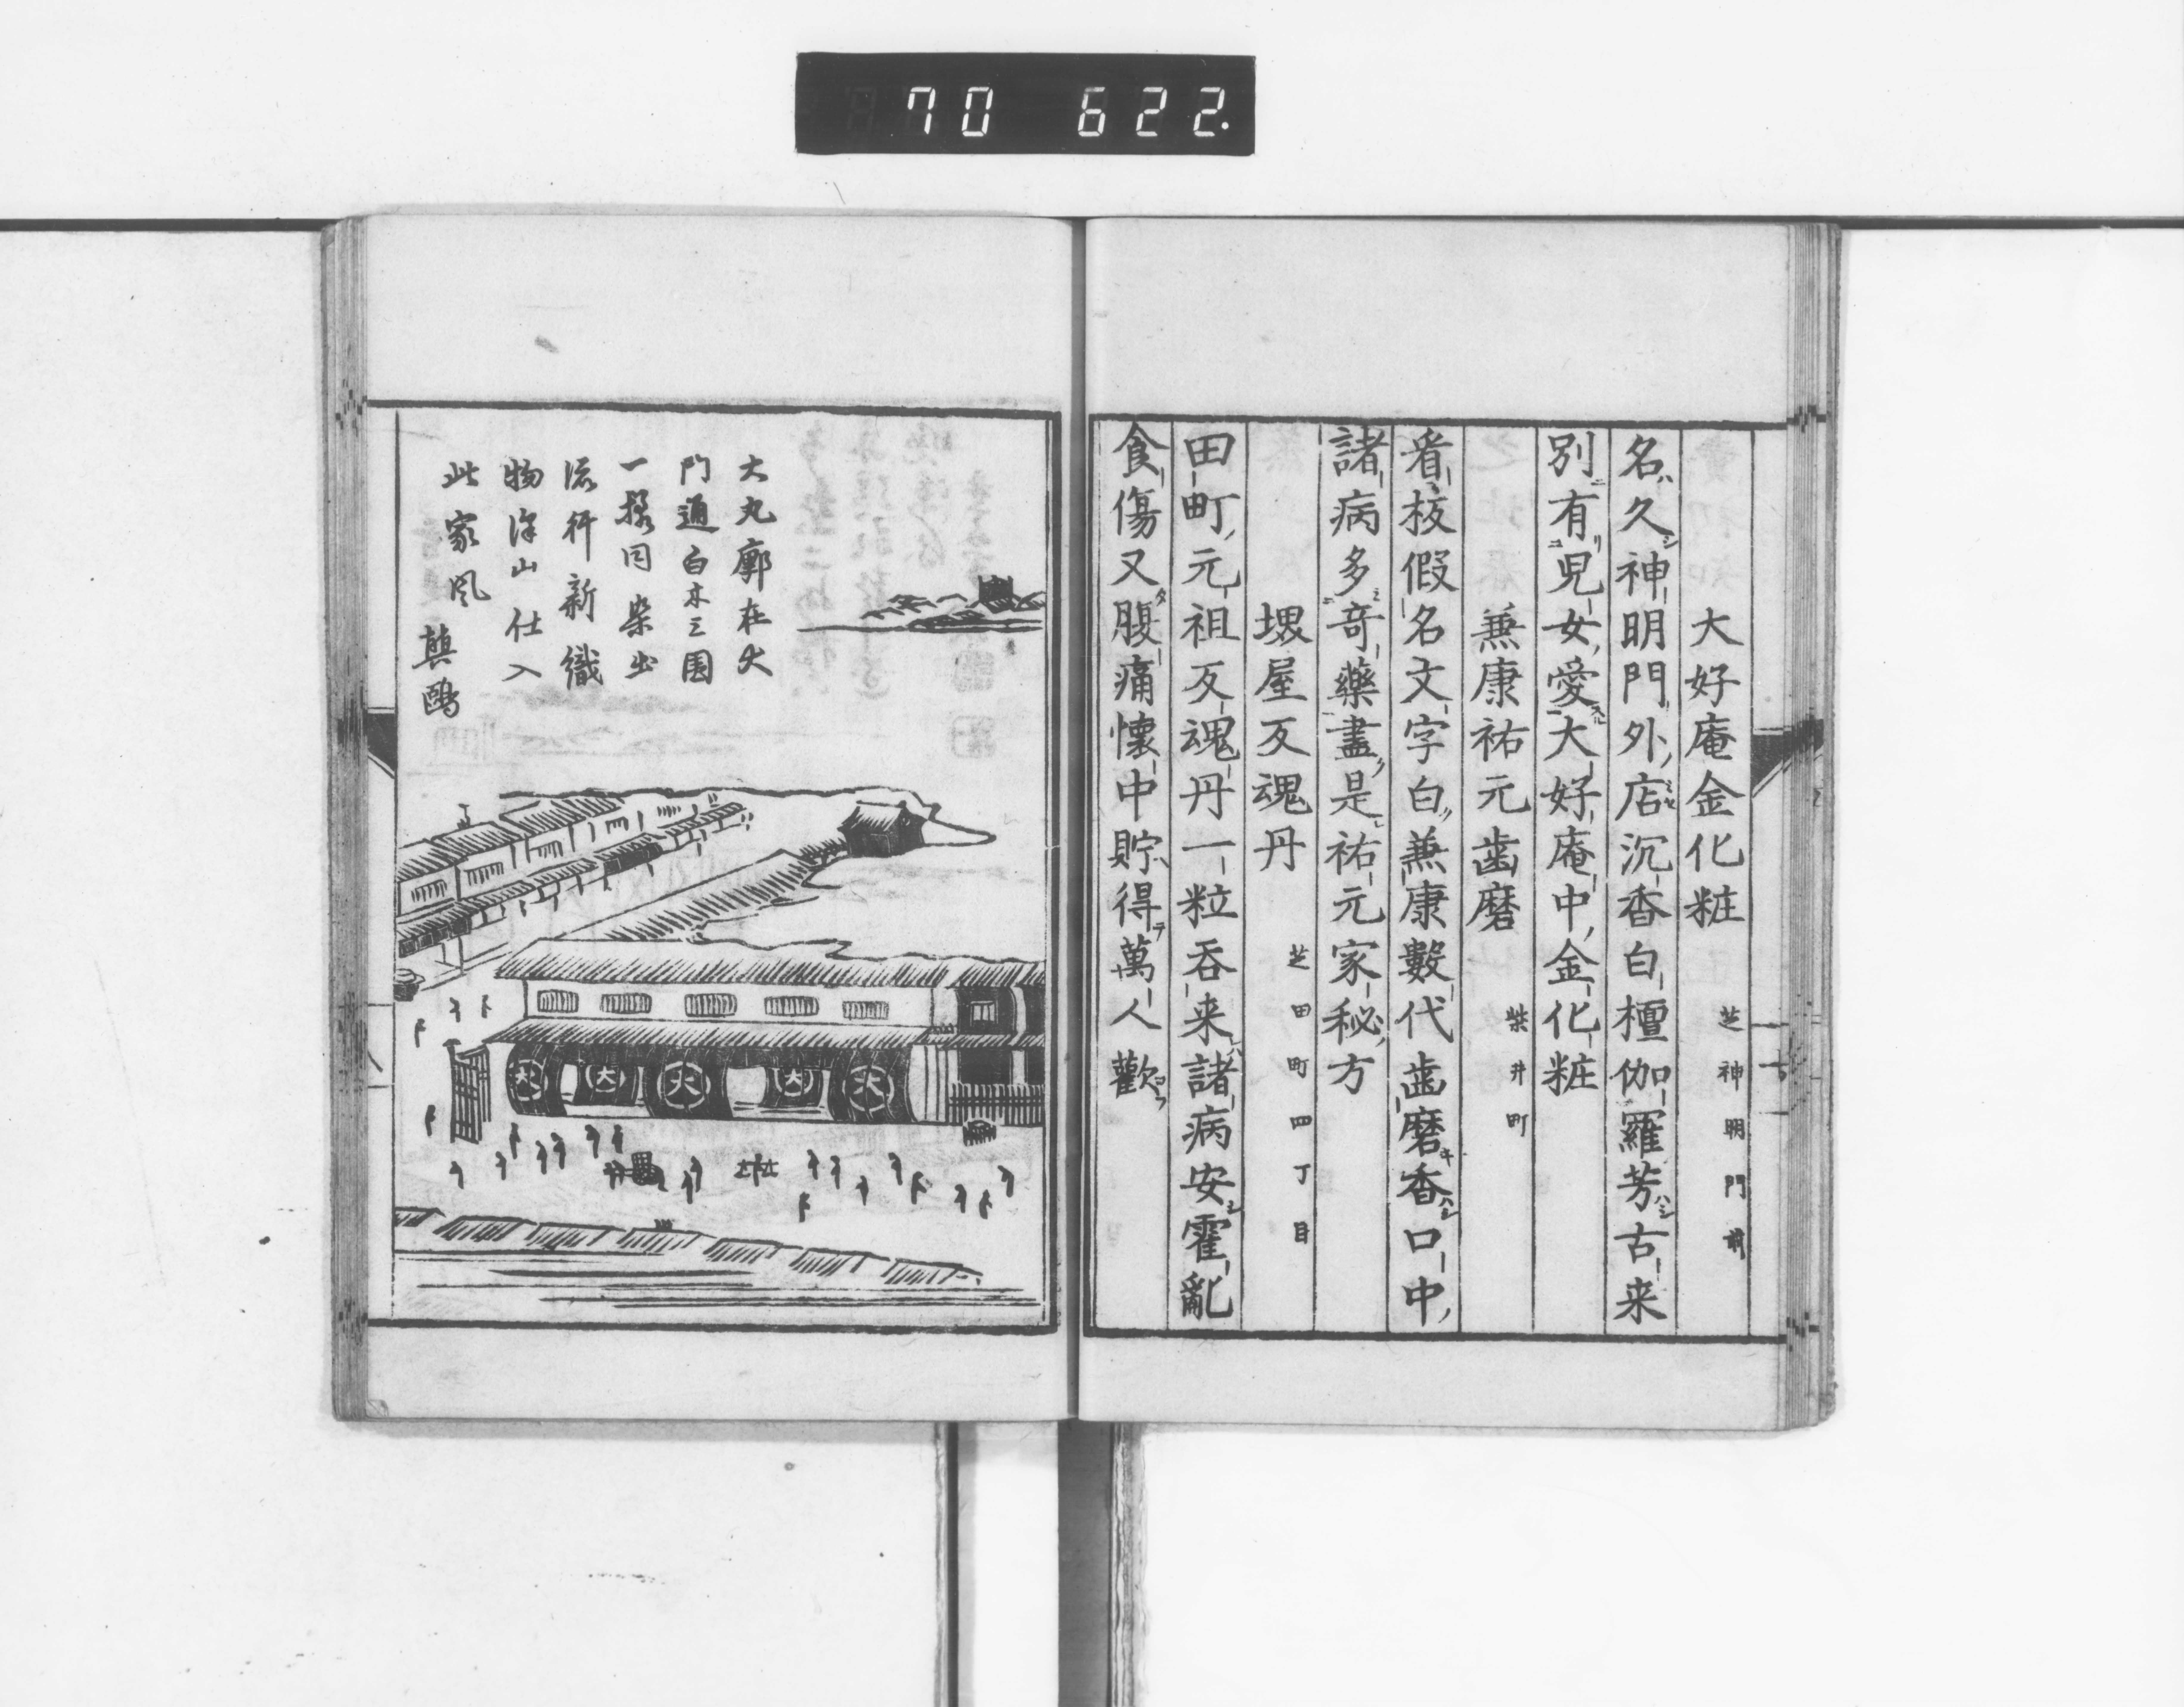 70 622.
大好庵金化粧 芝神明門前
名久神明門外店沉香白檀伽羅芳古来
別有兒女愛大好庵中金化粧
兼康祐元歯磨 柴井町
看板假名文字白兼康數代歯磨香口中
諸病多竒藥盡是祐元家秘方
堺屋反魂丹 芝田町四丁目
田町元祖反魂丹一粒吞来諸病安霍亂
食傷又腹痛懷中貯得萬人歡
大丸廓在大
門通白木三園
一様同染出
流行新織
物深山仕入
此家風
大
大
大
大
大